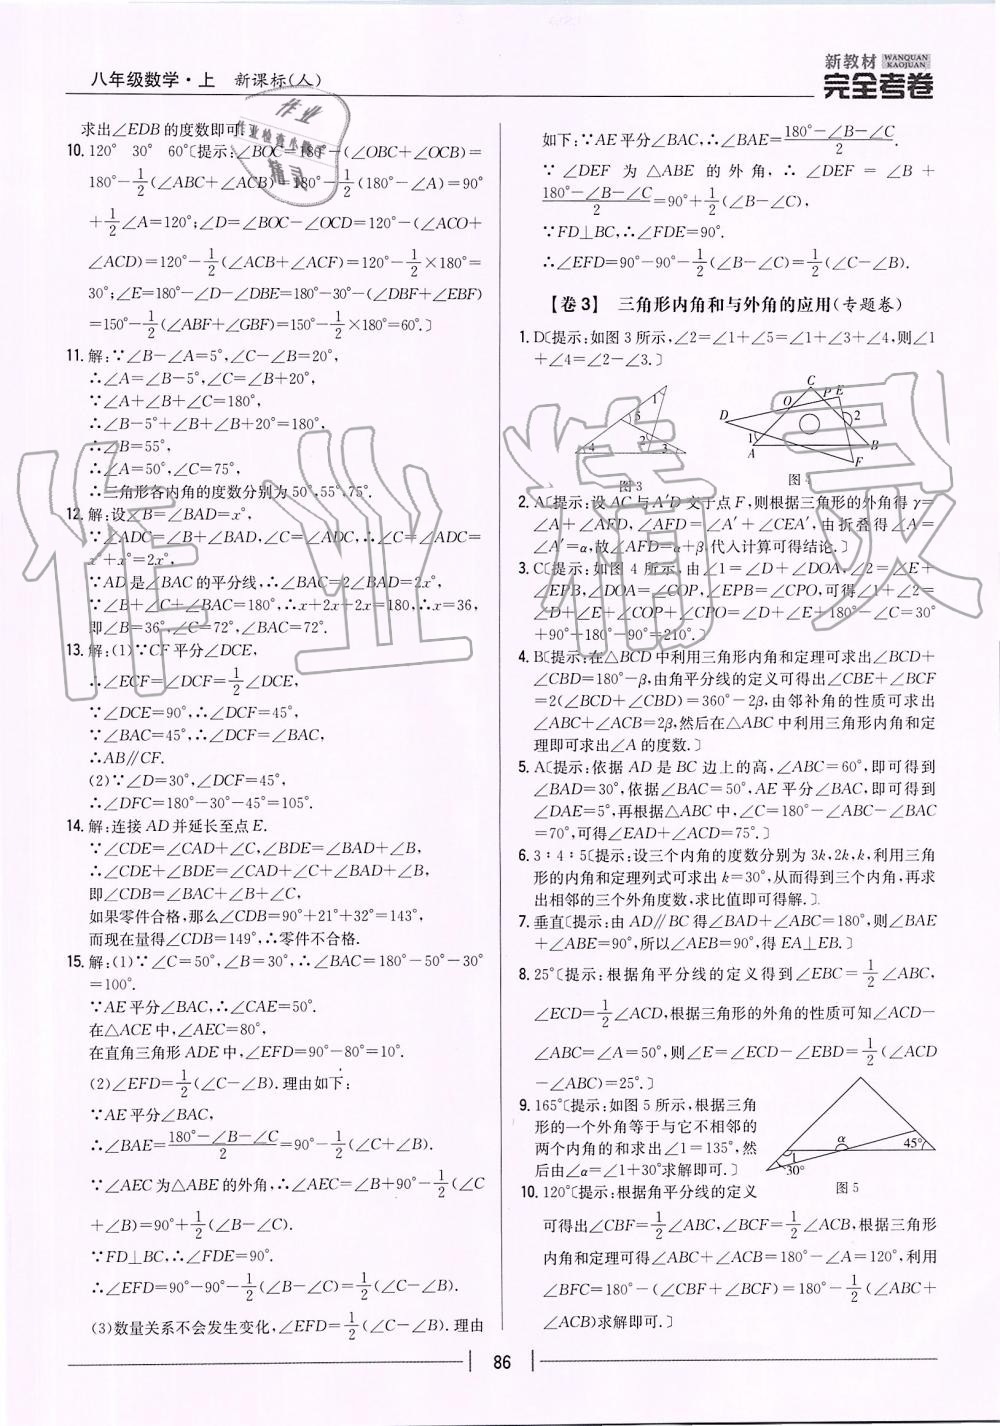 八年级数学·上 新课标(人)
新教材 WANQUAN KAOJUAN
完全考卷
求出∠EDB的度数即可.
10. 120° 30° 60°〔提示:∠BOC=180°-(∠OBC+∠OCB)=
180°-1/2(∠ABC+∠ACB)=180°-1/2(180°-∠A)=90°
+1/2∠A=120°;∠D=∠BOC-∠OCD=120°-(∠ACO+
∠ACD)=120°-1/2(∠ACB+∠ACF)=120°-1/2×180°=
30°;∠E=180°-∠D-∠DBE=180°-30°-(∠DBF+∠EBF)
=150°-1/2(∠ABF+∠GBF)=150°-1/2×180°=60°.〕
11. 解:∵∠B-∠A=5°,∠C-∠B=20°,
∴∠A=∠B-5°,∠C=∠B+20°,
∵∠A+∠B+∠C=180°,
∴∠B-5°+∠B+∠B+20°=180°,
∴∠B=55°,
∴∠A=50°,∠C=75°,
∴三角形各内角的度数分别为50°,55°,75°.
12. 解:设∠B=∠BAD=x°,
∵∠ADC=∠B+∠BAD,∠C=∠ADC,∴∠C=∠ADC=
x°+x°=2x°,
∵AD是∠BAC的平分线,∴∠BAC=2∠BAD=2x°.
∵∠B+∠C+∠BAC=180°,∴x+2x+2x=180,∴x=36,
即∠B=36°,∠C=72°,∠BAC=72°.
13. 解:(1)∵CF平分∠DCE,
∴∠ECF=∠DCF=1/2∠DCE,
∵∠DCE=90°,∴∠DCF=45°,
∵∠BAC=45°,∴∠DCF=∠BAC,
∴AB∥CF.
(2)∵∠D=30°,∠DCF=45°,
∴∠DFC=180°-30°-45°=105°.
14. 解:连接AD并延长至点E.
∵∠CDE=∠CAD+∠C,∠BDE=∠BAD+∠B,
∴∠CDE+∠BDE=∠CAD+∠C+∠BAD+∠B,
即∠CDB=∠BAC+∠B+∠C,
如果零件合格,那么∠CDB=90°+21°+32°=143°,
而现在量得∠CDB=149°,∴零件不合格.
15. 解:(1)∵∠C=50°,∠B=30°,∴∠BAC=180°-50°-30°
=100°.
∵AE平分∠BAC,∴∠CAE=50°.
在△ACE中,∠AEC=80°,
在直角三角形ADE中,∠EFD=90°-80°=10°.
(2)∠EFD=1/2(∠C-∠B).理由如下:
∵AE平分∠BAC,
∴∠BAE=(180°-∠B-∠C)/2=90°-1/2(∠C+∠B).
∵∠AEC为△ABE的外角,∴∠AEC=∠B+90°-1/2(∠C
+∠B)=90°+1/2(∠B-∠C).
∵FD⊥BC,∴∠FDE=90°.
∴∠EFD=90°-90°-1/2(∠B-∠C)=1/2(∠C-∠B).
(3)数量关系不会发生变化,∠EFD=1/2(∠C-∠B).理由
如下:∵AE平分∠BAC,∴∠BAE=(180°-∠B-∠C)/2.
∵∠DEF为△ABE的外角,∴∠DEF=∠B+
(180°-∠B-∠C)/2=90°+1/2(∠B-∠C),
∵FD⊥BC,∴∠FDE=90°.
∴∠EFD=90°-90°-1/2(∠B-∠C)=1/2(∠C-∠B).
【卷3】 三角形内角和与外角的应用(专题卷)
1. D〔提示:如图3所示,∠2=∠1+∠5=∠1+∠3+∠4,则∠1
+∠4=∠2-∠3.〕
1 5 2 4 3
C O P E D 2 1 A B F
图3
图
2. A〔提示:设AC与A′D交于点F,则根据三角形的外角得γ=
∠A+∠AFD,∠AFD=∠A′+∠CEA′,由折叠得∠A=
∠A′=α,故∠AFD=α+β,代入计算可得结论.〕
3. C〔提示:如图4所示,由∠1=∠D+∠DOA,∠2=∠E+
∠EPB,∠DOA=∠COP,∠EPB=∠CPO,可得∠1+∠2=
∠D+∠E+∠COP+∠CPO=∠D+∠E+180°-∠C=30°
+90°+180°-90°=210°.〕
4. B〔提示:在△BCD中利用三角形内角和定理可求出∠BCD+
∠CBD=180°-β,由角平分线的定义可得出∠CBE+∠BCF
=2(∠BCD+∠CBD)=360°-2β,由邻补角的性质可求出
∠ABC+∠ACB=2β,然后在△ABC中利用三角形内角和定
理即可求出∠A的度数.〕
5. A〔提示:依据AD是BC边上的高,∠ABC=60°,即可得到
∠BAD=30°,依据∠BAC=50°,AE平分∠BAC,即可得到
∠DAE=5°,再根据△ABC中,∠C=180°-∠ABC-∠BAC
=70°,可得∠EAD+∠ACD=75°.〕
6. 3∶4∶5〔提示:设三个内角的度数分别为3k,2k,k,利用三角
形的内角和定理列式可求出k=30°,从而得到三个内角,再求
出相邻的三个外角度数,求比值即可得解.〕
7. 垂直〔提示:由AD∥BC得∠BAD+∠ABC=180°,则∠BAE
+∠ABE=90°,所以∠AEB=90°,得EA⊥EB.〕
8. 25°〔提示:根据角平分线的定义得到∠EBC=1/2∠ABC,
∠ECD=1/2∠ACD,根据三角形的外角的性质可知∠ACD-
∠ABC=∠A=50°,则∠E=∠ECD-∠EBD=1/2(∠ACD
-∠ABC)=25°.〕
9. 165°〔提示:如图5所示,根据三角
形的一个外角等于与它不相邻的
两个内角的和求出∠1=135°,然
后由∠α=∠1+30°求解即可.〕
α 45° 1 30°
图5
10. 120°〔提示:根据角平分线的定义
可得出∠CBF=1/2∠ABC,∠BCF=1/2∠ACB,根据三角形
内角和定理可得∠ABC+∠ACB=180°-∠A=120°,利用
∠BFC=180°-(∠CBF+∠BCF)=180°-1/2(∠ABC+
∠ACB)求解即可.〕
86
作业精灵
作业
作业检查小帮手
精灵